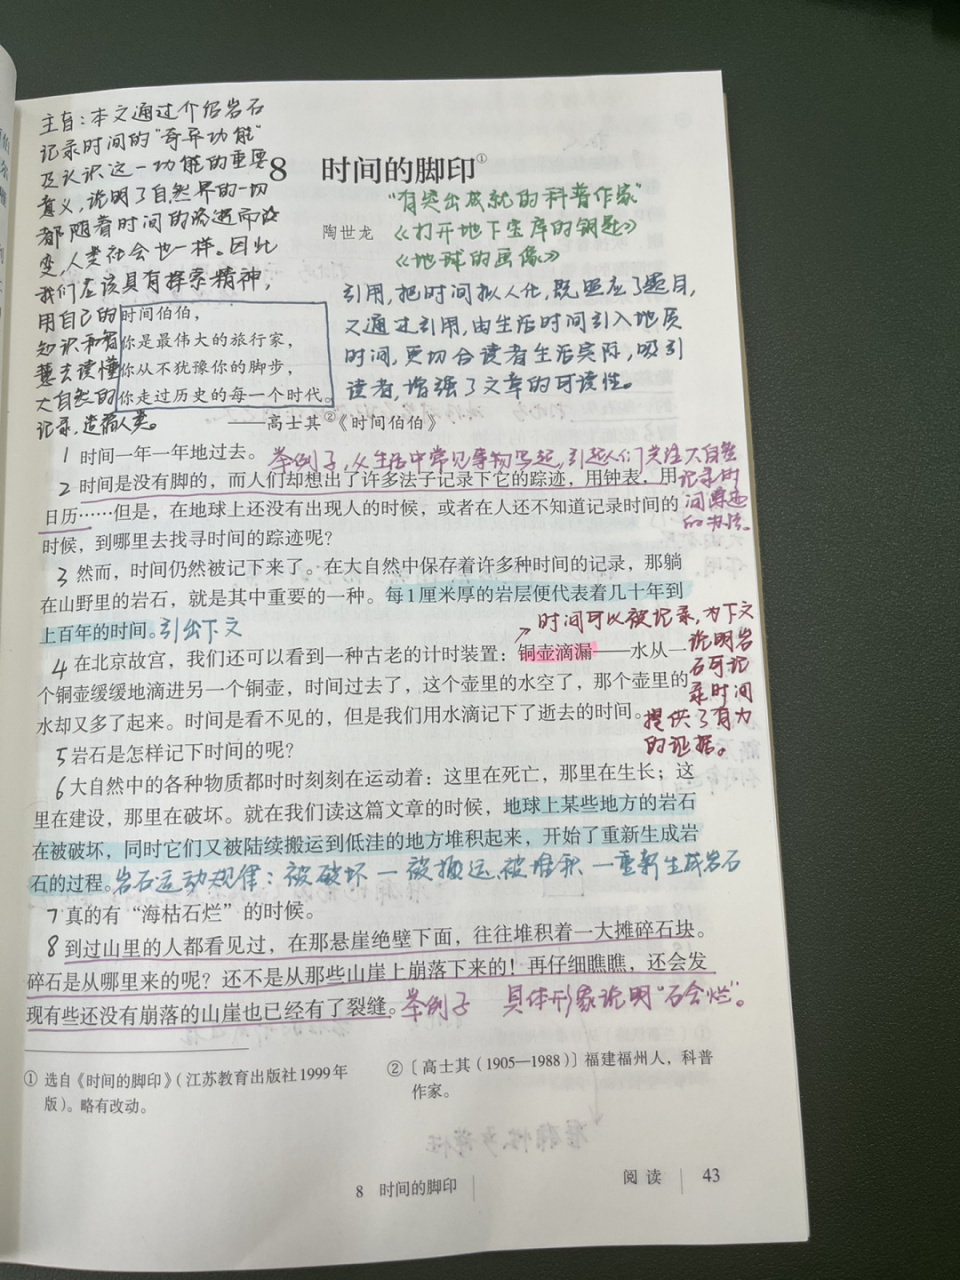 主旨：本文通过介绍岩石
记录时间的“奇异功能”
及认识这一功能的重要
意义，说明了自然界的一切
都随着时间的流逝而改
变，人类社会也一样。因此
我们应该具有探索精神，
用自己的
知识和智
慧去读懂
大自然的
记录，造福人类。
8 时间的脚印①
“有突出成就的科普作家”
陶世龙
《打开地下宝库的钥匙》
《地球的画像》
引用，把时间拟人化，既照应了题目，
又通过引用，由生活时间引入地质
时间，更切合读者生活实际，吸引
读者，增强了文章的可读性。
时间伯伯，
你是最伟大的旅行家，
你从不犹豫你的脚步，
你走过历史的每一个时代。
——高士其②《时间伯伯》
1 时间一年一年地过去。
举例子，从生活中常见事物写起，引起人们关注大自然
记录时
间踪迹
的方法。
2 时间是没有脚的，而人们却想出了许多法子记录下它的踪迹，用钟表，用
日历……但是，在地球上还没有出现人的时候，或者在人还不知道记录时间的
时候，到哪里去找寻时间的踪迹呢？
3 然而，时间仍然被记下来了。在大自然中保存着许多种时间的记录，那躺
在山野里的岩石，就是其中重要的一种。每1厘米厚的岩层便代表着几十年到
上百年的时间。引出下文
时间可以被记录，为下文
说明岩
石可记
录时间
提供了有力
的证据。
4 在北京故宫，我们还可以看到一种古老的计时装置：铜壶滴漏——水从一
个铜壶缓缓地滴进另一个铜壶，时间过去了，这个壶里的水空了，那个壶里的
水却又多了起来。时间是看不见的，但是我们用水滴记下了逝去的时间。
5 岩石是怎样记下时间的呢？
6 大自然中的各种物质都时时刻刻在运动着：这里在死亡，那里在生长；这
里在建设，那里在破坏。就在我们读这篇文章的时候，地球上某些地方的岩石
在被破坏，同时它们又被陆续搬运到低洼的地方堆积起来，开始了重新生成岩
石的过程。岩石运动规律：被破坏—被搬运、被堆积—重新生成岩石
7 真的有“海枯石烂”的时候。
8 到过山里的人都看见过，在那悬崖绝壁下面，往往堆积着一大摊碎石块。
碎石是从哪里来的呢？还不是从那些山崖上崩落下来的！再仔细瞧瞧，还会发
现有些还没有崩落的山崖也已经有了裂缝。举例子 具体形象说明“石会烂”。
① 选自《时间的脚印》（江苏教育出版社1999年
版）。略有改动。
② 〔高士其（1905—1988）〕福建福州人，科普
作家。
8 时间的脚印
阅读 43